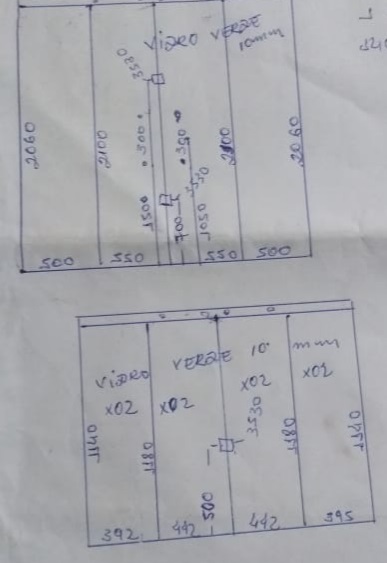 VIDRO VERDE
10mm
3530
2060
2100
1500
300
350
3530
700
1050
2100
2060
500
550
550
500
VIDRO VERDE 10 mm
x02
x02
x02
x02
1140
1180
3530
500
1180
1140
392
442
442
395